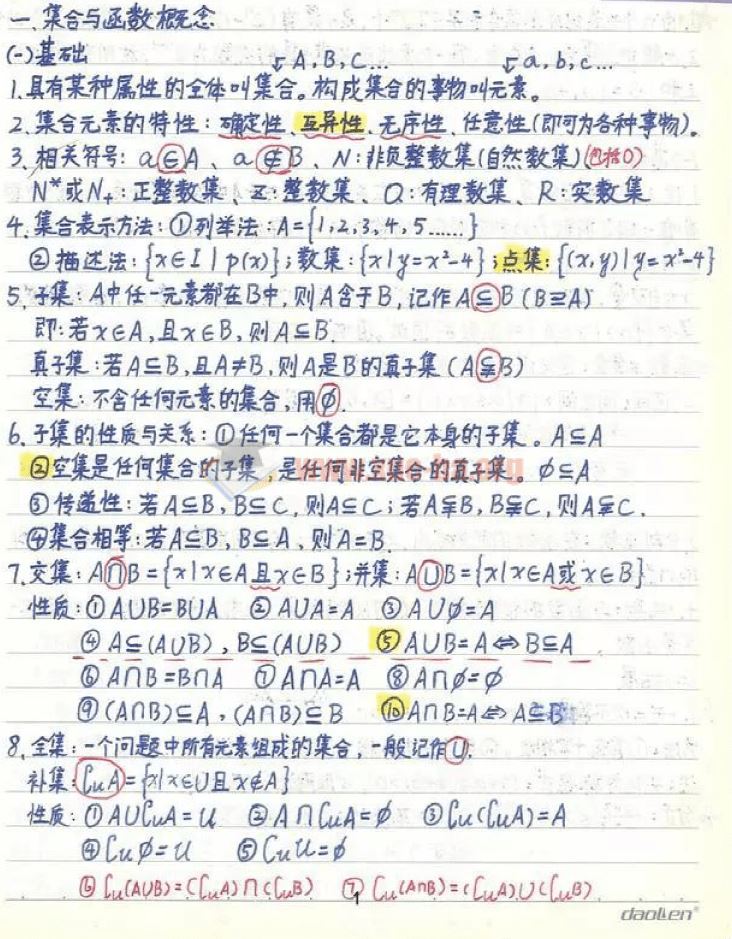 一、集合与函数概念
(一)基础 ↙A,B,C... ↙a,b,c...
1.具有某种属性的全体叫集合。构成集合的事物叫元素。
2.集合元素的特性:确定性、互异性、无序性、任意性(即可为各种事物)。
3.相关符号: a∈A、a∉B、N:非负整数集(自然数集)(包括0)
N*或N₊:正整数集、Z:整数集、Q:有理数集、R:实数集
4.集合表示方法:①列举法:A={1,2,3,4,5……}
②描述法:{x∈I|p(x)};数集:{x|y=x²-4};点集:{(x,y)|y=x²-4}
5.子集:A中任一元素都在B中,则A含于B,记作A⊆B(B⊇A)
即:若x∈A,且x∈B,则A⊆B.
真子集:若A⊆B,且A≠B,则A是B的真子集(A⫋B)
空集:不含任何元素的集合,用∅.
6.子集的性质与关系:①任何一个集合都是它本身的子集。A⊆A
②空集是任何集合的子集,是任何非空集合的真子集。∅⊆A
③传递性:若A⊆B,B⊆C,则A⊆C;若A⫋B,B⫋C,则A⫋C.
④集合相等:若A⊆B,B⊆A,则A=B.
7.交集:A∩B={x|x∈A且x∈B};并集:A∪B={x|x∈A或x∈B}
性质:①A∪B=B∪A ②A∪A=A ③A∪∅=A
④A⊆(A∪B),B⊆(A∪B) ⑤A∪B=A⇔B⊆A
⑥A∩B=B∩A ⑦A∩A=A ⑧A∩∅=∅
⑨(A∩B)⊆A,(A∩B)⊆B ⑩A∩B=A⇔A⊆B
8.全集:一个问题中所有元素组成的集合,一般记作U.
补集:∁uA={x|x∈U且x∉A}
性质:①A∪∁uA=U ②A∩∁uA=∅ ③∁u(∁uA)=A
④∁u∅=U ⑤∁uU=∅
⑥∁u(A∪B)=(∁uA)∩(∁uB) ⑦∁u(A∩B)=(∁uA)∪(∁uB)
1
daolien®